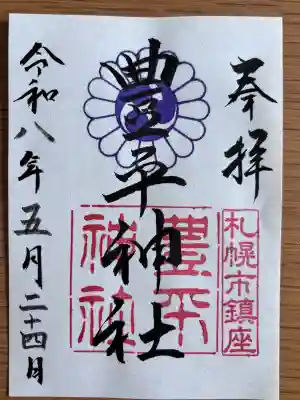 奉拝
札幌市鎮座
豊平神社
豊平
神社
令和八年五月二十四日